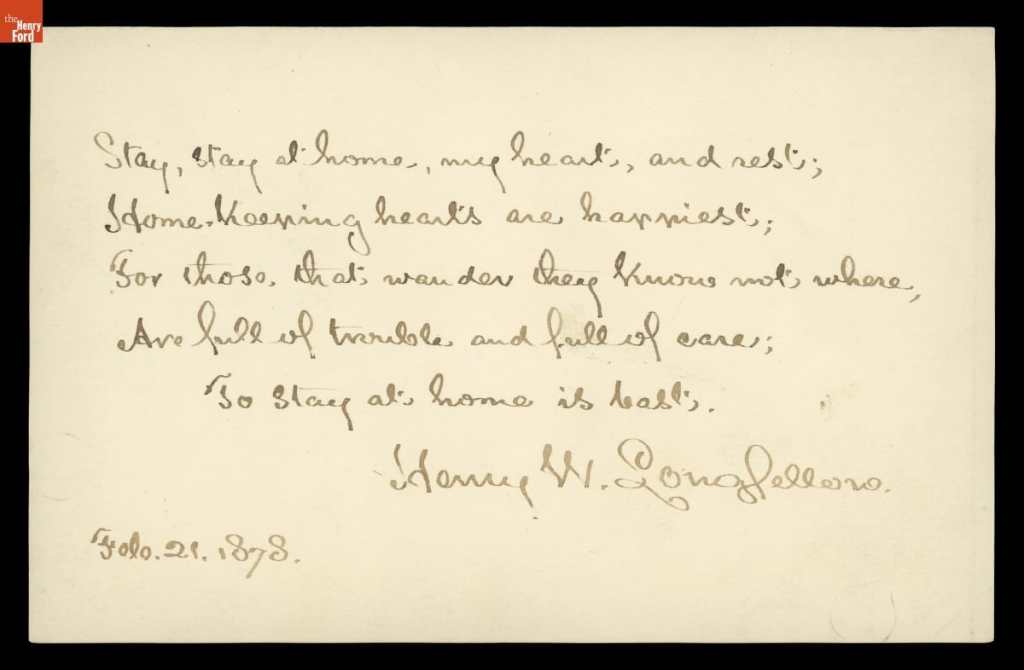 the
Henry
Ford
Stay, stay at home, my heart, and rest;
Home-Keeping hearts are happiest;
For those that wander they Know not where,
Are full of trouble and full of care;
To stay at home is best.
Henry W. Longfellow.
Feb. 21. 1878.